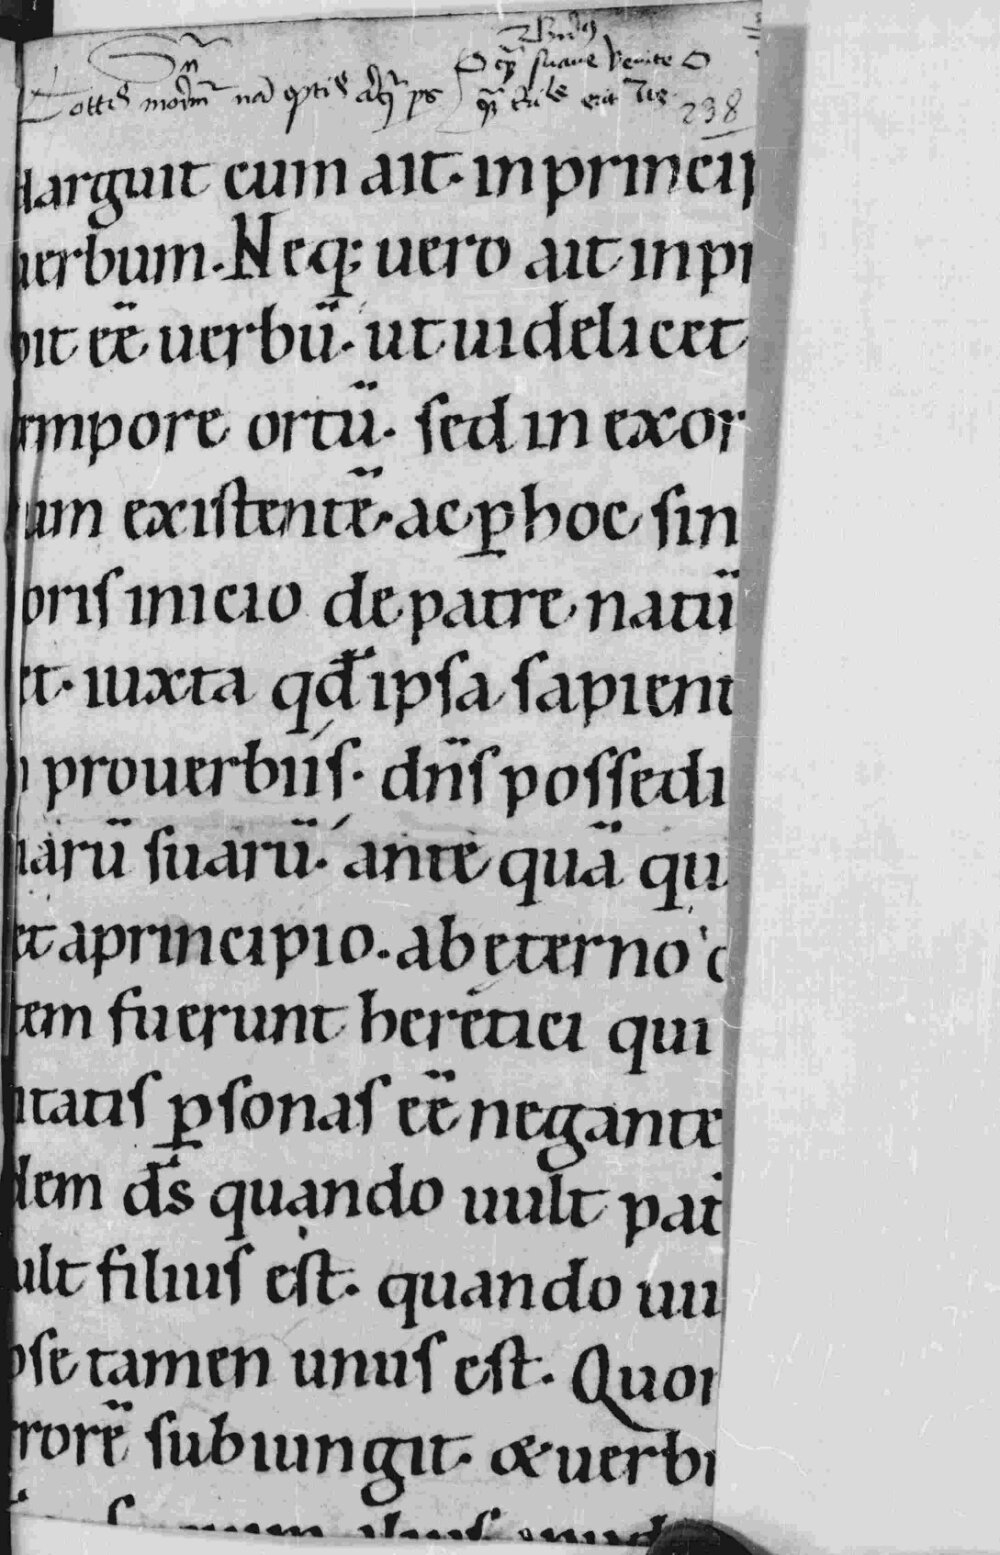 suave venite
238
darguit cum ait. in princip
uerbum. Neq; uero ait in pr
pit eē uerbū. ut uidelicet
empore ortū. sed in exor
um existentē. ac p̱ hoc sin
oris inicio de patre natū
et. iuxta qđ ipsa sapient
prouerbiis. dn̄s possedi
iarū suarū. ante quā qu
et a principio. ab ęterno
tem fuerunt heretici qui
itatis p̱sonas eē negante
dem d̄s quando uult pat
ult filius est. quando uu
pse tamen unus est. Quor
rorē subiungit. & uerbu